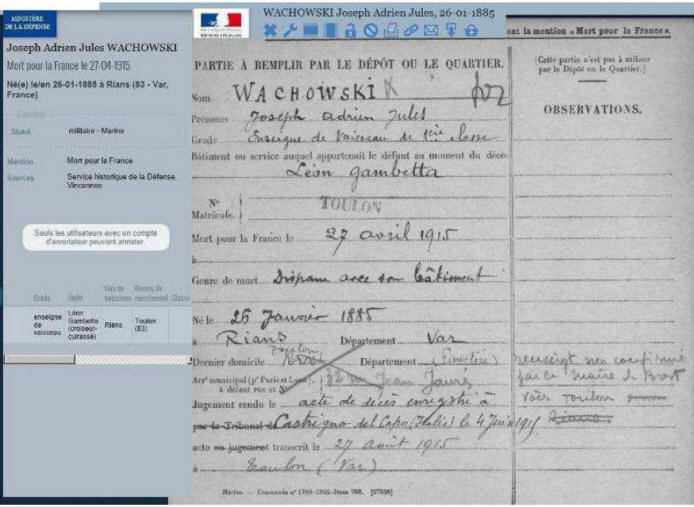 MINISTÈRE
DE LA DÉFENSE
Joseph Adrien Jules WACHOWSKI
Mort pour la France le 27-04-1915
Né(e) le/en 26-01-1885 à Rians (83 - Var,
France)
Carrière
Statut militaire - Marine
Mention Mort pour la France
Sources Service historique de la Défense,
Vincennes
Seuls les utilisateurs avec un compte
d'annotateur peuvent annoter
Grade Unité Lieu de naissance Bureau de recrutement Classe
enseigne de vaisseau Léon Gambetta (croiseur-cuirassé) Rians Toulon (83)
WACHOWSKI Joseph Adrien Jules, 26-01-1885
ent la mention « Mort pour la France ».
PARTIE À REMPLIR PAR LE DÉPÔT OU LE QUARTIER.
Nom WACHOWSKI
Prénoms Joseph adrien Jules
Grade Enseigne de Vaisseau de 1ère classe
Bâtiment ou service auquel appartenait le défunt au moment du décès
Léon gambetta
N°
Matricule. TOULON
Mort pour la France le 27 avril 1915
à
Genre de mort Disparu avec son bâtiment
Né le 26 Janvier 1885
à Rians Département Var
Toulon
Dernier domicile Département (Finistère)
Arrt municipal (pr Paris et Lyon). 32 rue Jean Jaurès
à défaut rue et N°
Jugement rendu le acte de décès enregistré à
par le Tribunal de Castrigno del Capo (Italie) le 4 Juin 1915
acte ou jugement transcrit le 27 août 1915
à Toulon (Var)
[Cette partie n'est pas à utiliser
par le Dépôt ou le Quartier.]
OBSERVATIONS.
renseigt non confirmé
par le maire de Brest
voir Toulon
Rians